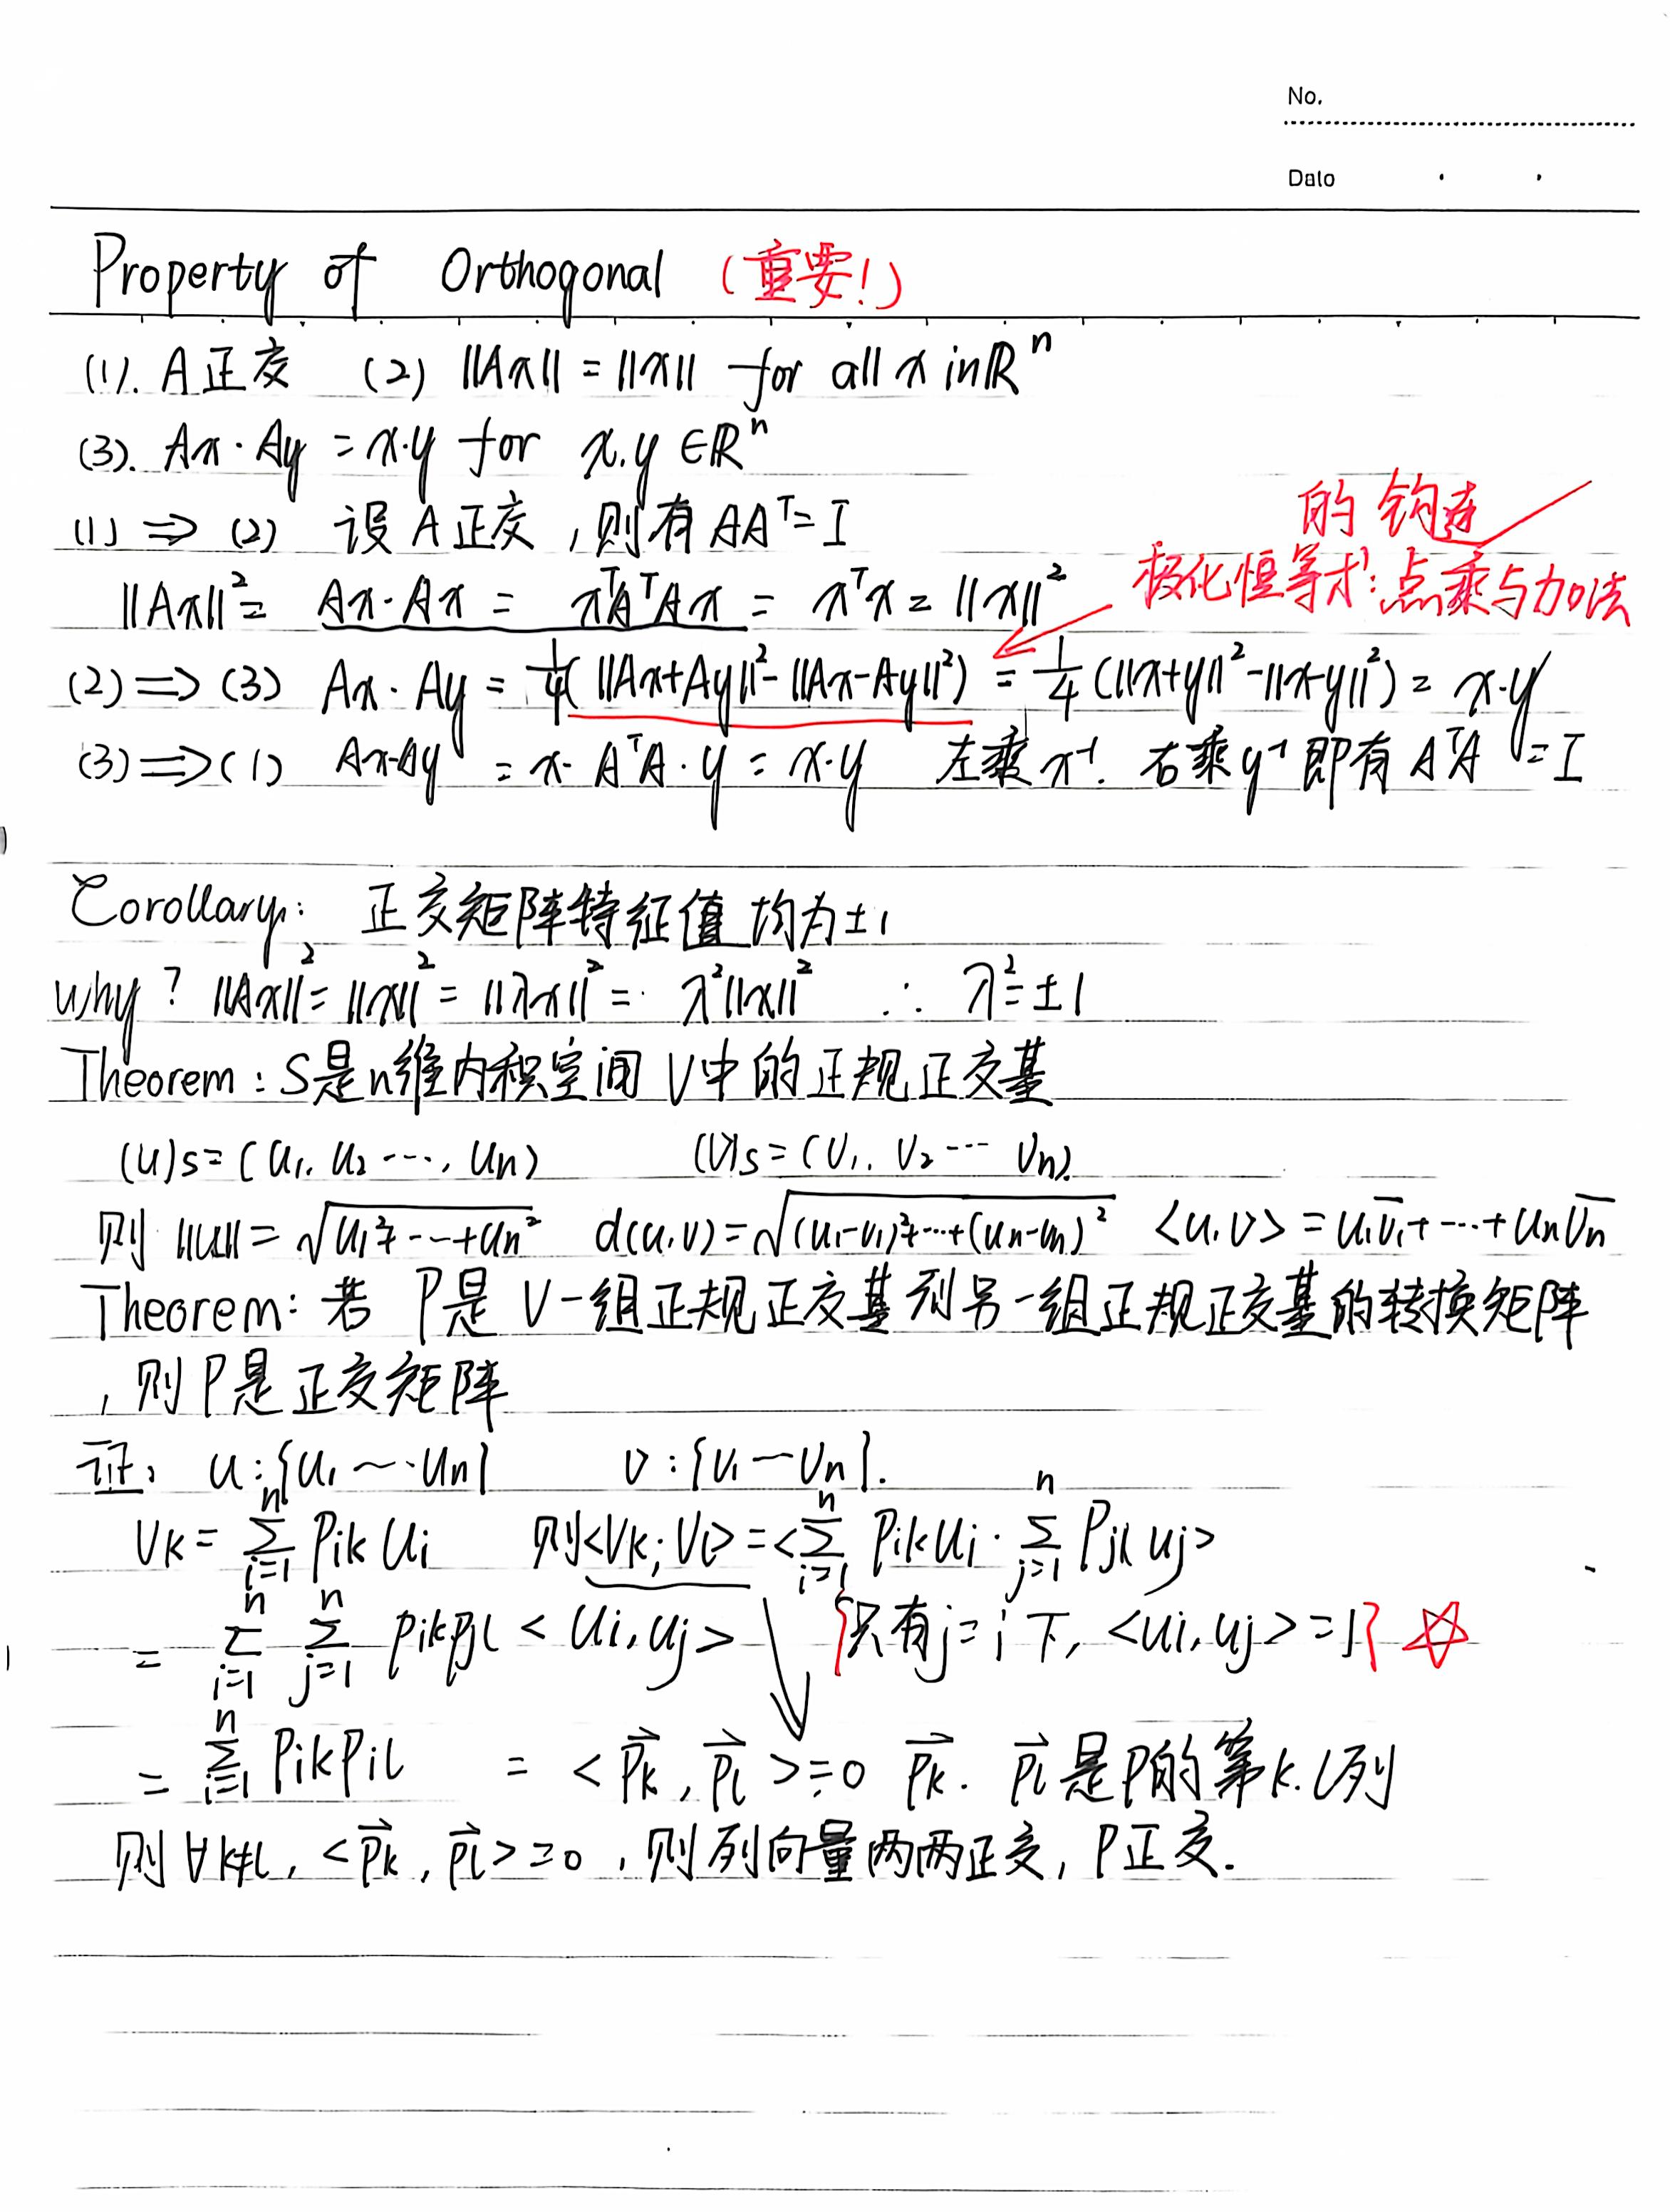 No.
Date
Property of Orthogonal (重要!)
(1). A正交 (2) ||Ax|| = ||x|| for all x in ℝⁿ
(3). Ax · Ay = x·y for x.y ∈ℝⁿ
(1) ⇒ (2) 设 A 正交 ,则有 AAᵀ= I
的 钩连
||Ax||² = Ax·Ax = xᵀAᵀAx = xᵀx = ||x||² 极化恒等式:点乘与加法
(2) ⇒ (3) Ax · Ay = 1/4( ||Ax+Ay||² - ||Ax-Ay||²) = 1/4 (||x+y||² - ||x-y||²) = x·y
(3) ⇒ (1) Ax·Ay = x· AᵀA · y = x·y 左乘 x⁻¹. 右乘 y⁻¹ 即有 AᵀA = I
Corollary: 正交矩阵特征值 均为±1
why? ||Ax||² = ||x||² = ||λx||² = λ²||x||² ∴ λ²=±1
Theorem : S是n维内积空间 V中的正规正交基
(u)s = (u₁, u₂ ···, un) (v)s = (v₁, v₂ ··· vn)
则 ||u|| = √(u₁²+···+un²) d(u,v) = √((u₁-v₁)²+···+(un-vn)²) <u,v> = u₁v̅₁+···+unv̅n
Theorem: 若 P是 V一组正规正交基到另一组正规正交基的转换矩阵
, 则P是正交矩阵
证: u:{u₁ ~ ·un} v : {v₁ — vn}.
Vk = Σⁿᵢ₌₁ Pik Ui 则<Vk; Vl> = <Σⁿᵢ₌₁ PikUi · Σⁿⱼ₌₁ Pjl uj>
= Σⁿᵢ₌₁ Σⁿⱼ₌₁ pikpjl < Ui, uj > {只有j = i 下, <ui, uj> = 1} ☆
= Σⁿᵢ₌₁ PikPil = < p⃗k, p⃗l > = 0 p⃗k. p⃗l 是P的第k.l列
则 ∀k≠l, <p⃗k, p⃗l> = 0 , 则列向量两两正交, P正交.